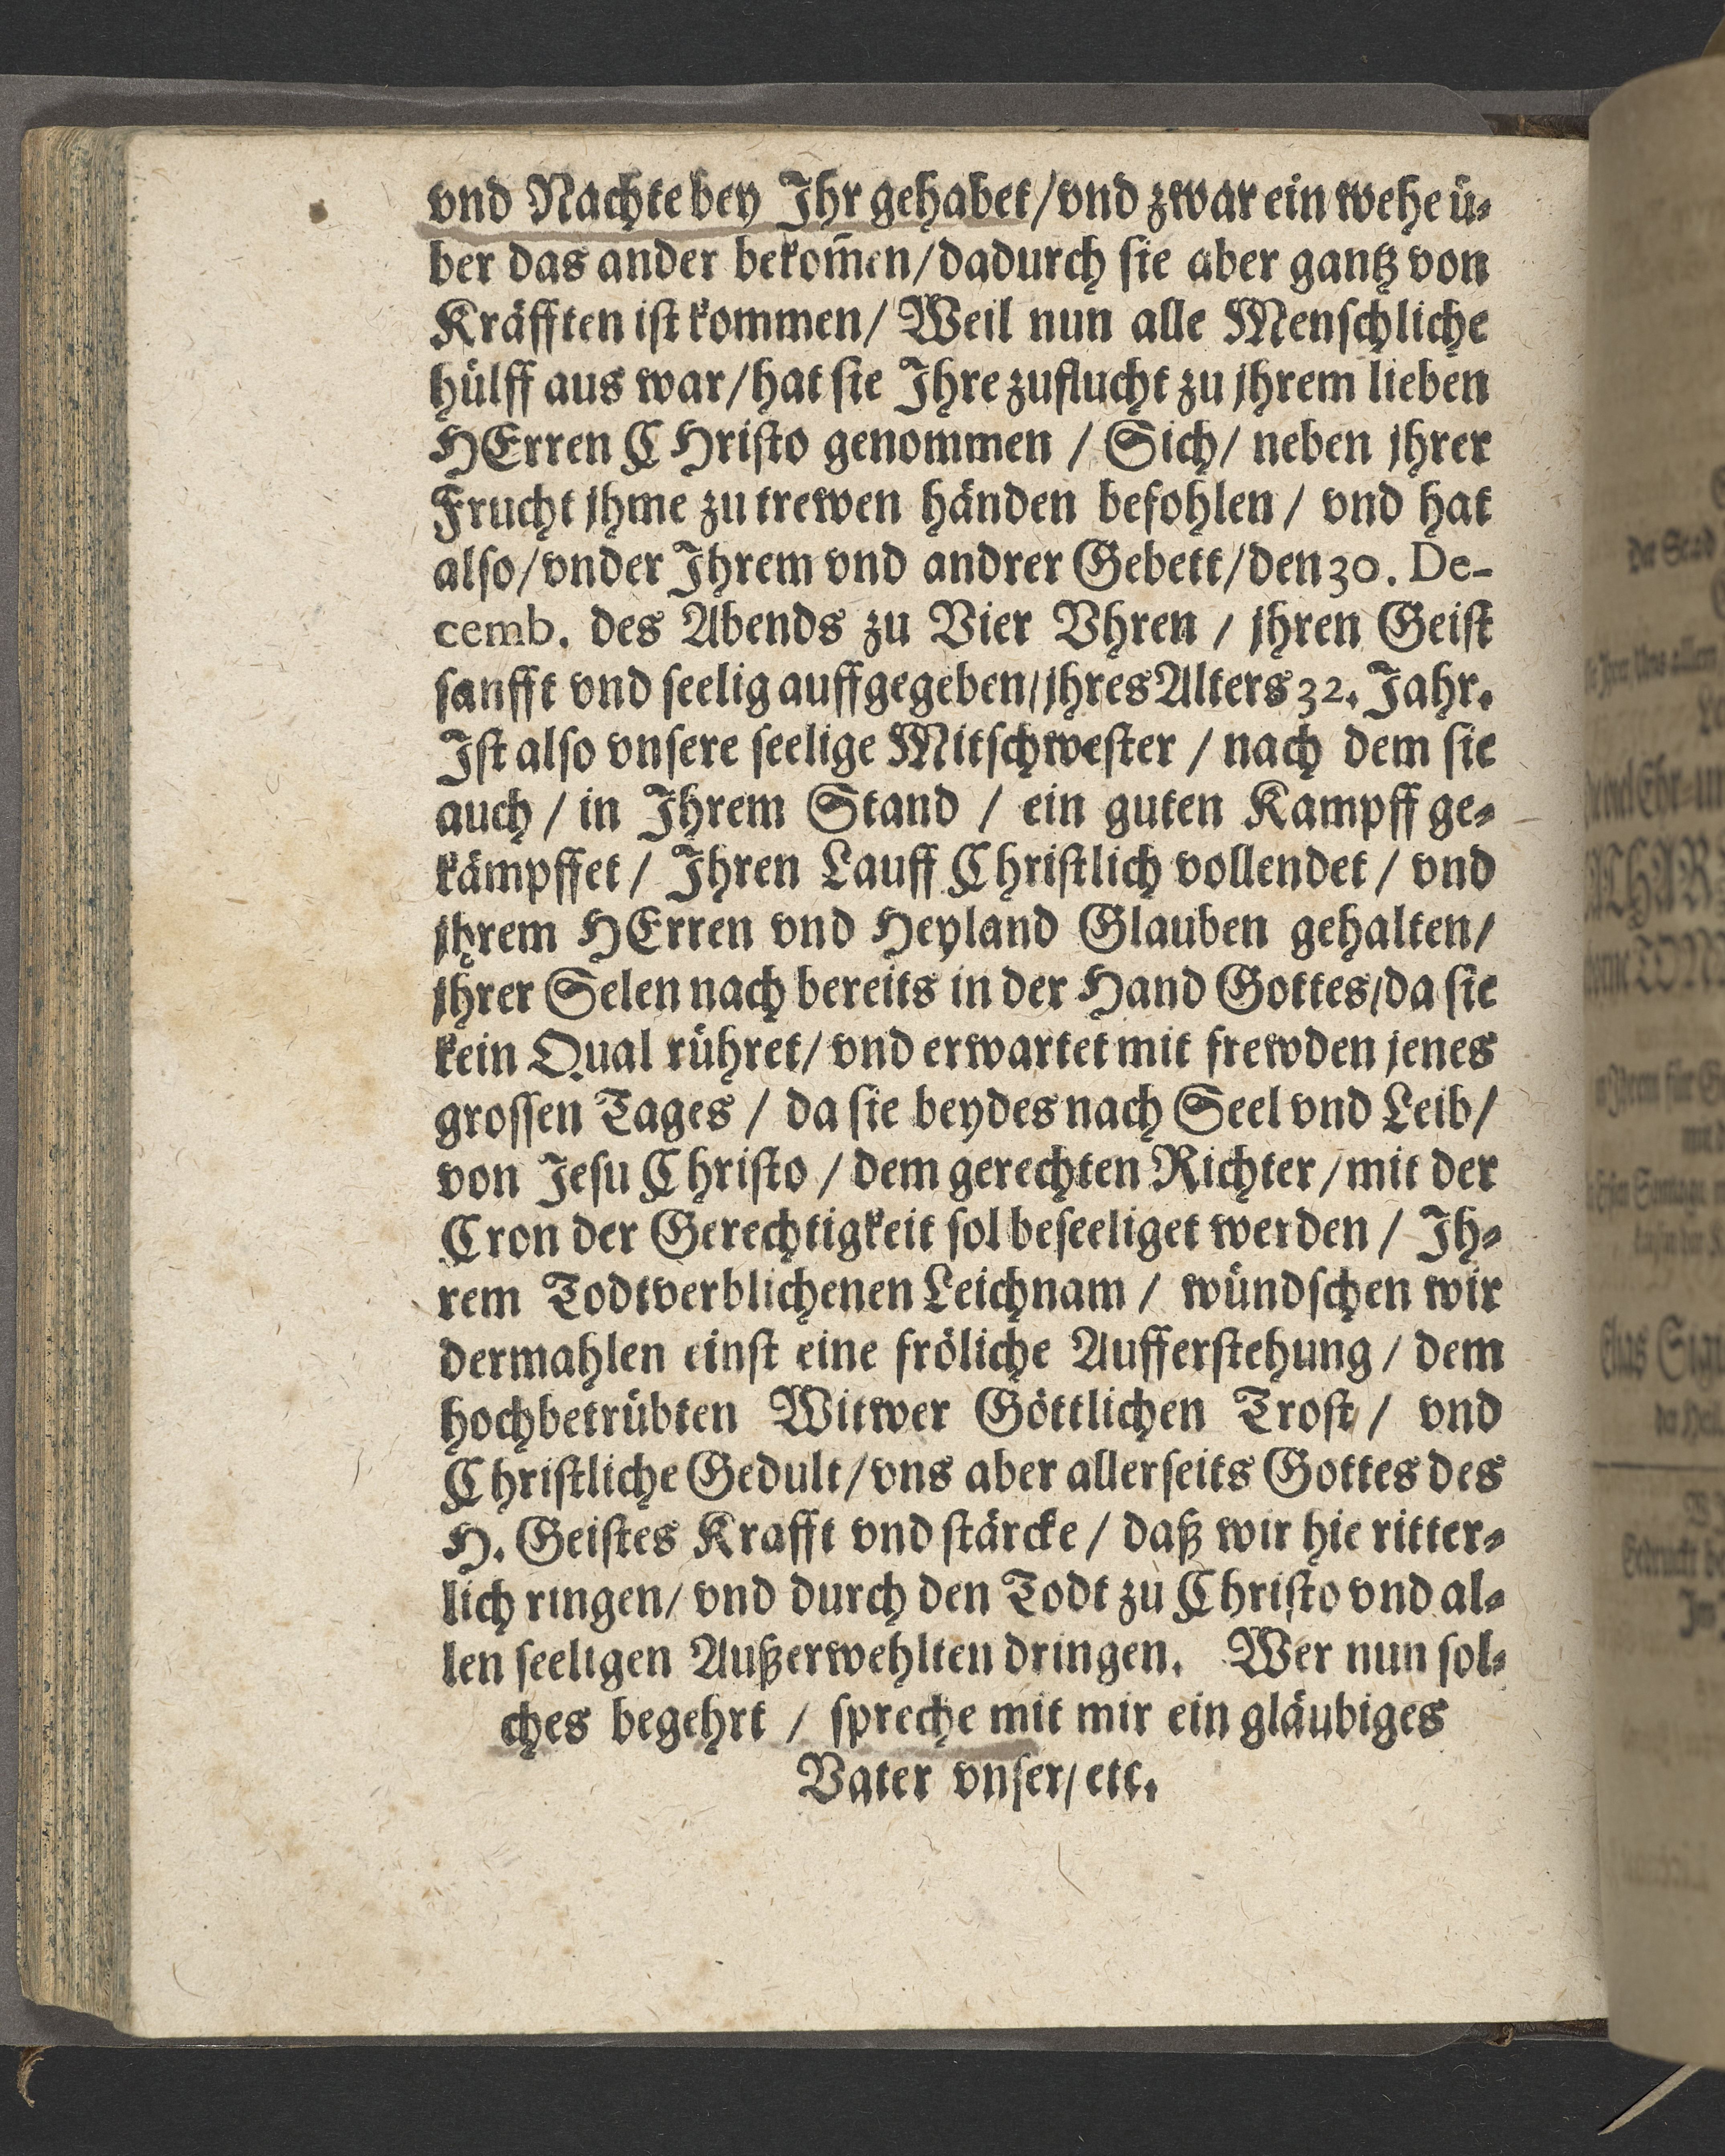 vnd Nachte bey Ihr gehabet/vnd zwar ein wehe ü-
ber das ander bekom̃en/dadurch sie aber gantz von
Kräfften ist kommen/ Weil nun alle Menschliche
hülff aus war/hat sie Ihre zuflucht zu jhrem lieben
HErren CHristo genommen / Sich/ neben jhrer
Frucht jhme zu trewen händen befohlen / vnd hat
also/vnder Ihrem vnd andrer Gebett/den 30. De-
cemb. des Abends zu Vier Vhren / jhren Geist
sanfft vnd seelig auffgegeben/jhres Alters 32. Jahr.
Ist also vnsere seelige Mitschwester / nach dem sie
auch / in Ihrem Stand / ein guten Kampff ge-
kämpffet / Ihren Lauff Christlich vollendet / vnd
jhrem HErren vnd Heyland Glauben gehalten/
jhrer Selen nach bereits in der Hand Gottes/da sie
kein Qual rühret/ vnd erwartet mit frewden jenes
grossen Tages / da sie beydes nach Seel vnd Leib/
von Jesu Christo / dem gerechten Richter/mit der
Cron der Gerechtigkeit sol beseeliget werden / Ih-
rem Todtverblichenen Leichnam / wündschen wir
dermahlen einst eine fröliche Aufferstehung / dem
hochbetrübten Witwer Göttlichen Trost / vnd
Christliche Gedult/vns aber allerseits Gottes des
H. Geistes Krafft vnd stärcke / daß wir hie ritter-
lich ringen/ vnd durch den Todt zu Christo vnd al-
len seeligen Außerwehlten dringen. Wer nun sol-
ches begehrt / spreche mit mir ein gläubiges
Vater vnser/etc.